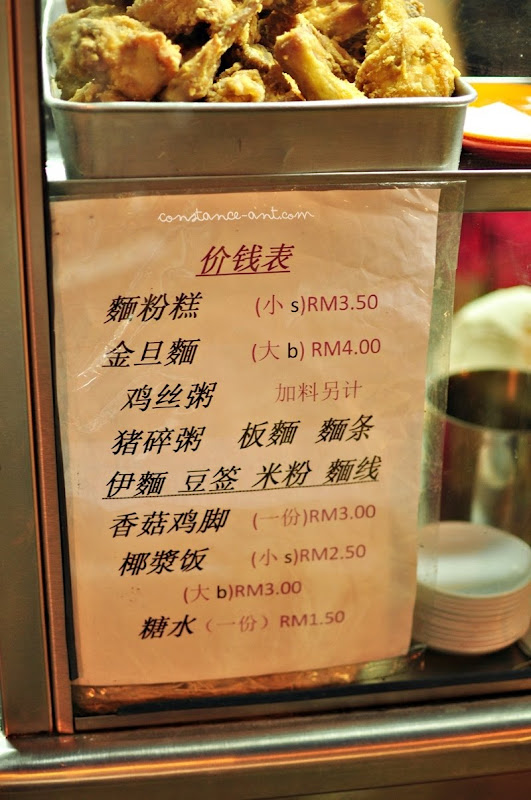 constance-ant.com
价钱表
麵粉糕 (小 s)RM3.50
金旦麵 (大 b) RM4.00
鸡丝粥 加料另计
猪碎粥 板麵 麵条
伊麵 豆签 米粉 麵线
香菇鸡脚 (一份)RM3.00
椰漿饭 (小 s)RM2.50
(大 b)RM3.00
糖水（一份）RM1.50